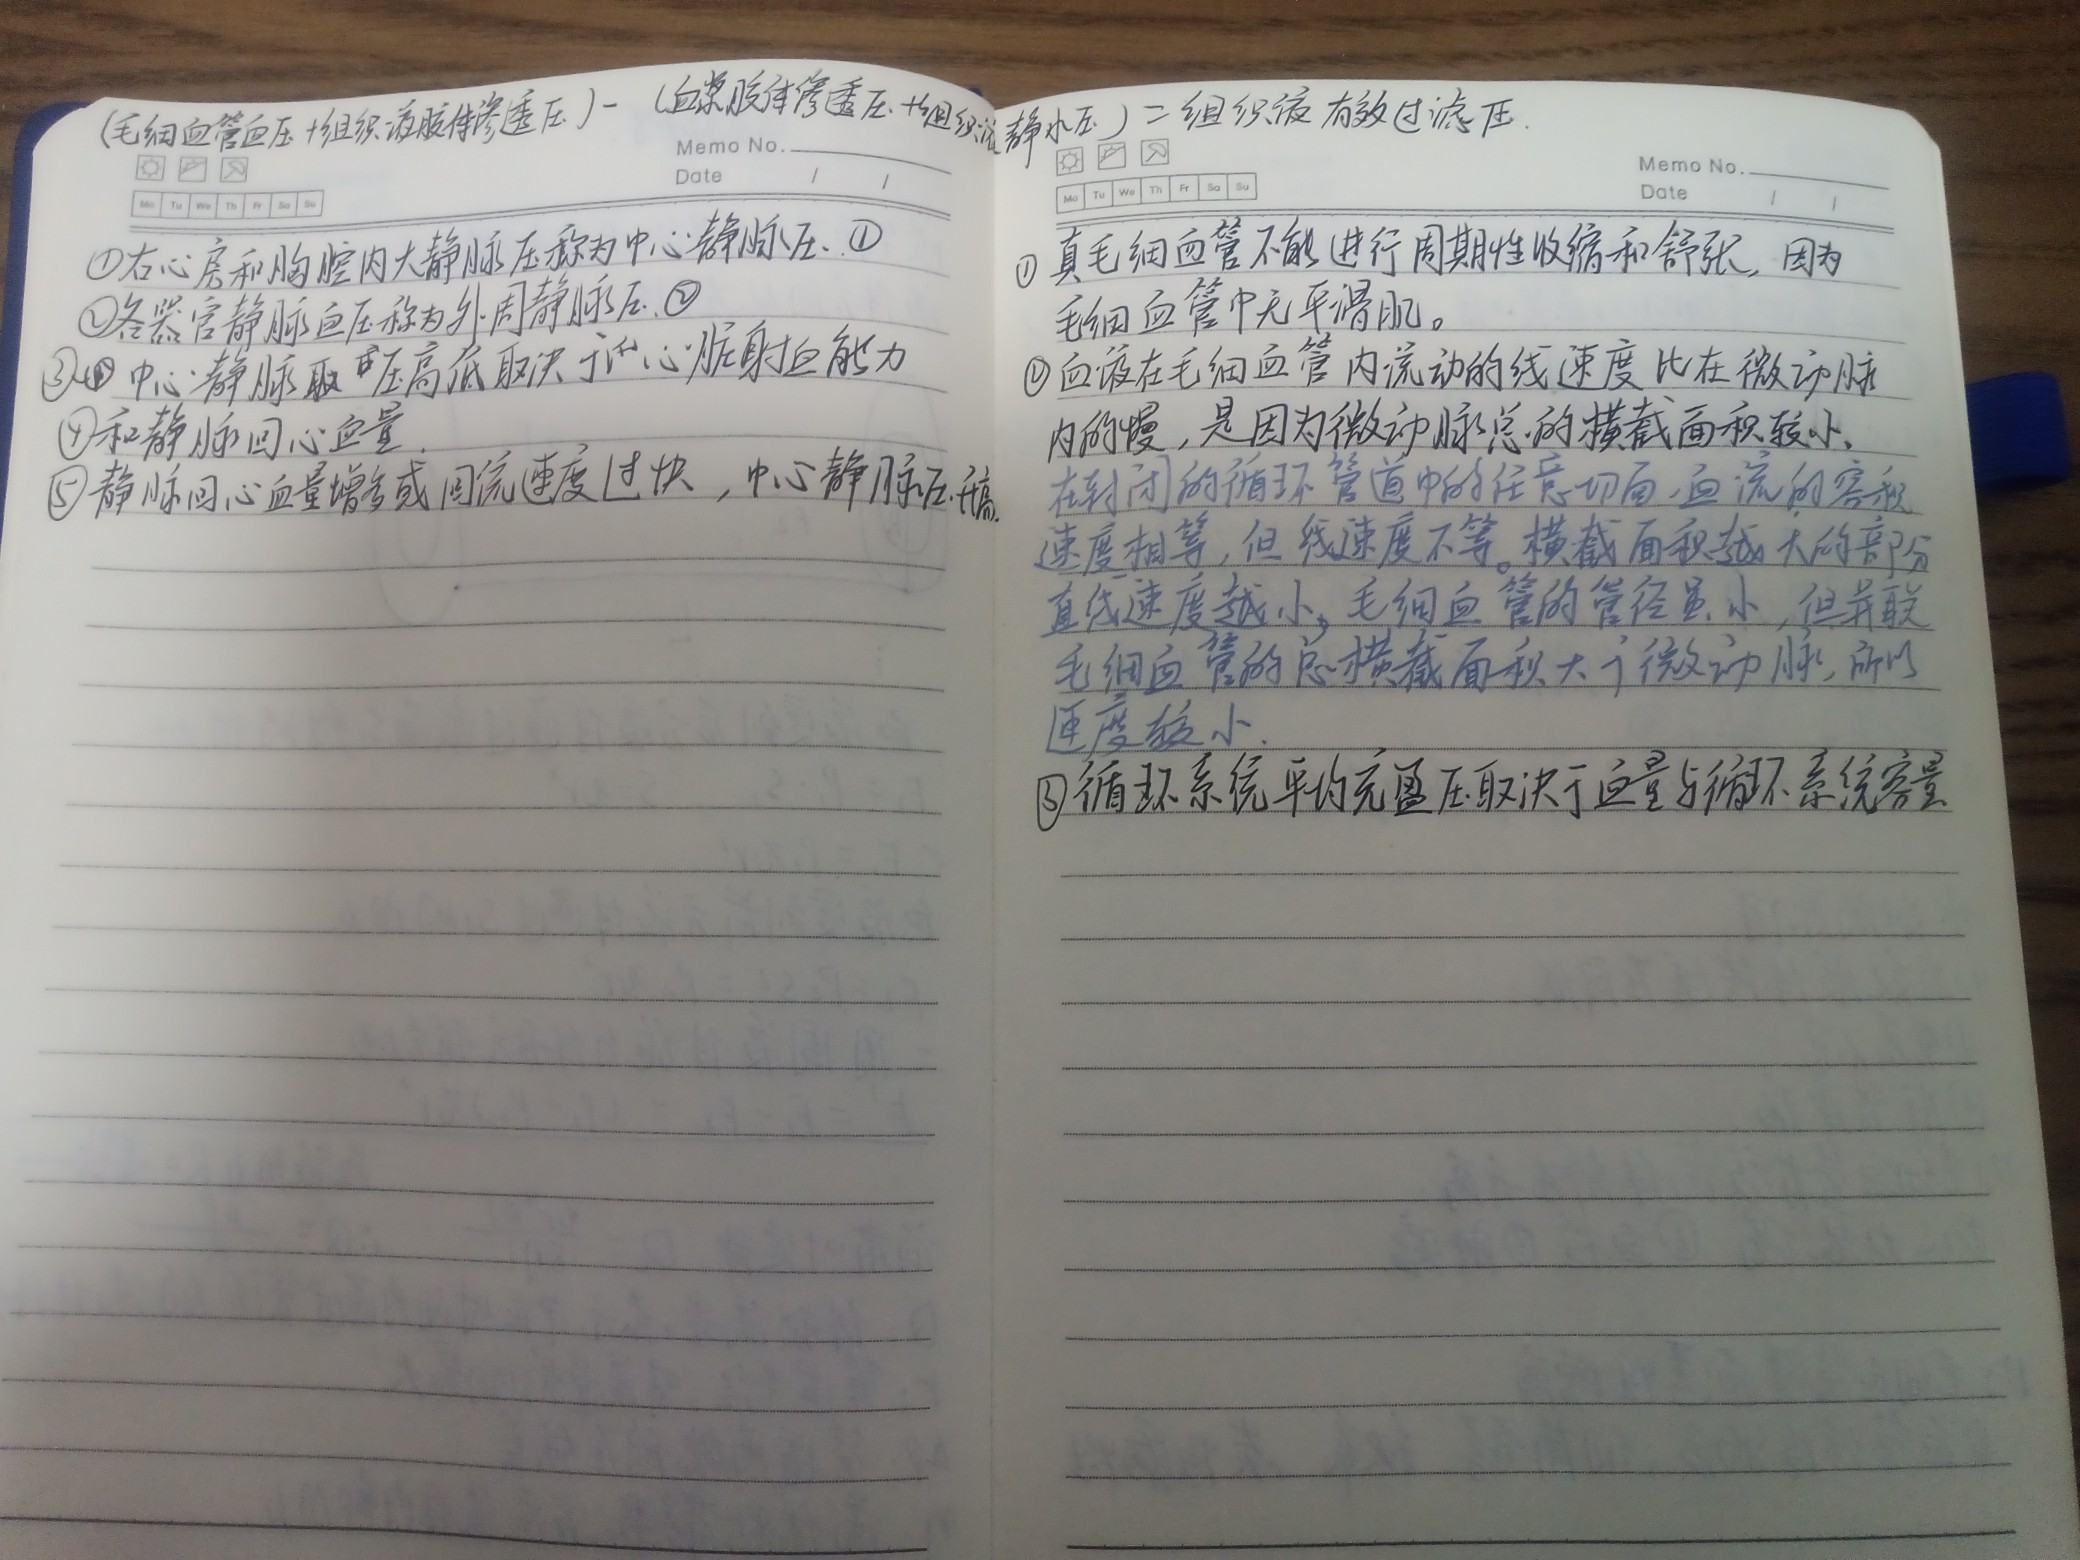 (毛细血管血压+组织液胶体渗透压)-(血浆胶体渗透压+组织液静水压)=组织液有效过滤压.
Memo No.
Date / /
Mo Tu We Th Fr Sa Su
①右心房和胸腔内大静脉压称为中心静脉压.①
②各器官静脉血压称为外周静脉压.②
③ 中心静脉 压高低取决于 心脏射血能力
④和静脉回心血量.
⑤静脉回心血量增多或回流速度过快,中心静脉压升高.
Memo No.
Date / /
Mo Tu We Th Fr Sa Su
①真毛细血管不能进行周期性收缩和舒张,因为
毛细血管中无平滑肌。
②血液在毛细血管内流动的线速度比在微动脉
内的慢,是因为微动脉总的横截面积较小.
在封闭的循环管道中的任意切面,血流的容积
速度相等,但线速度不等。横截面积越大的部分
直线速度越小,毛细血管的管径虽小,但并联
毛细血管的总横截面积大于微动脉,所以
速度较小.
③循环系统平均充盈压取决于血量与循环系统容量